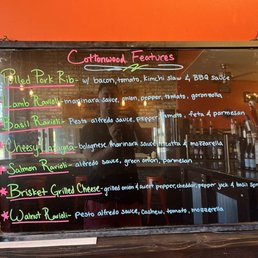 Cottonwood Features
Pulled Pork Rib- w/ bacon, tomato, kimchi slaw & BBQ sauce
Lamb Ravioli- marinara sauce, onion, pepper, tomato, gorgonzola
Basil Ravioli- Pesto alfredo sauce, pepper, tomato, feta & parmesan
Cheesy Lasagna- bolognese, marinara sauce, ricotta & mozzarella
Salmon Ravioli- alfredo sauce, green onion, parmesan
Brisket Grilled Cheese- grilled onion & sweet pepper, cheddar, pepper jack & basil
Walnut Ravioli- Pesto alfredo sauce, cashew, tomato, mozzarella